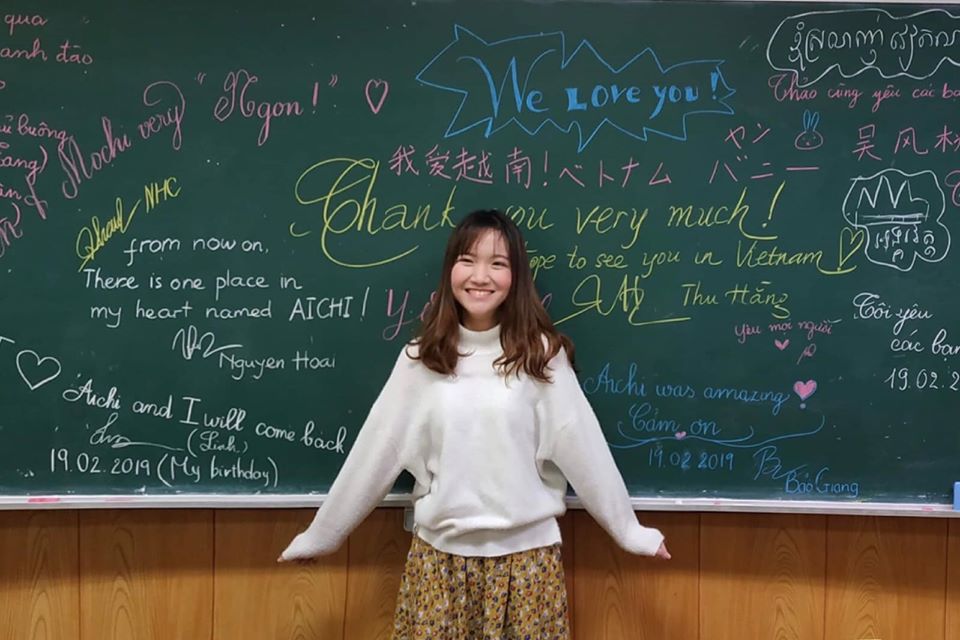 qua
anh đào
Mochi very "Ngon!"
We Love you!
Thảo cũng yêu các bạ
我爱越南!
ベトナム
ヤン
バニー
吴风
NHC
Thank you very much!
ope to see you in Vietnam
Thu Hằng
from now on,
There is one place in
my heart named AICHI!
Nguyen Hoai
yêu mọi người
Tôi yêu
các bạn
19.02.2
Aichi and I will come back
(Linh)
19.02.2019 (My birthday)
Aichi was amazing
Cảm ơn
19.02 2019
Bảo Giang